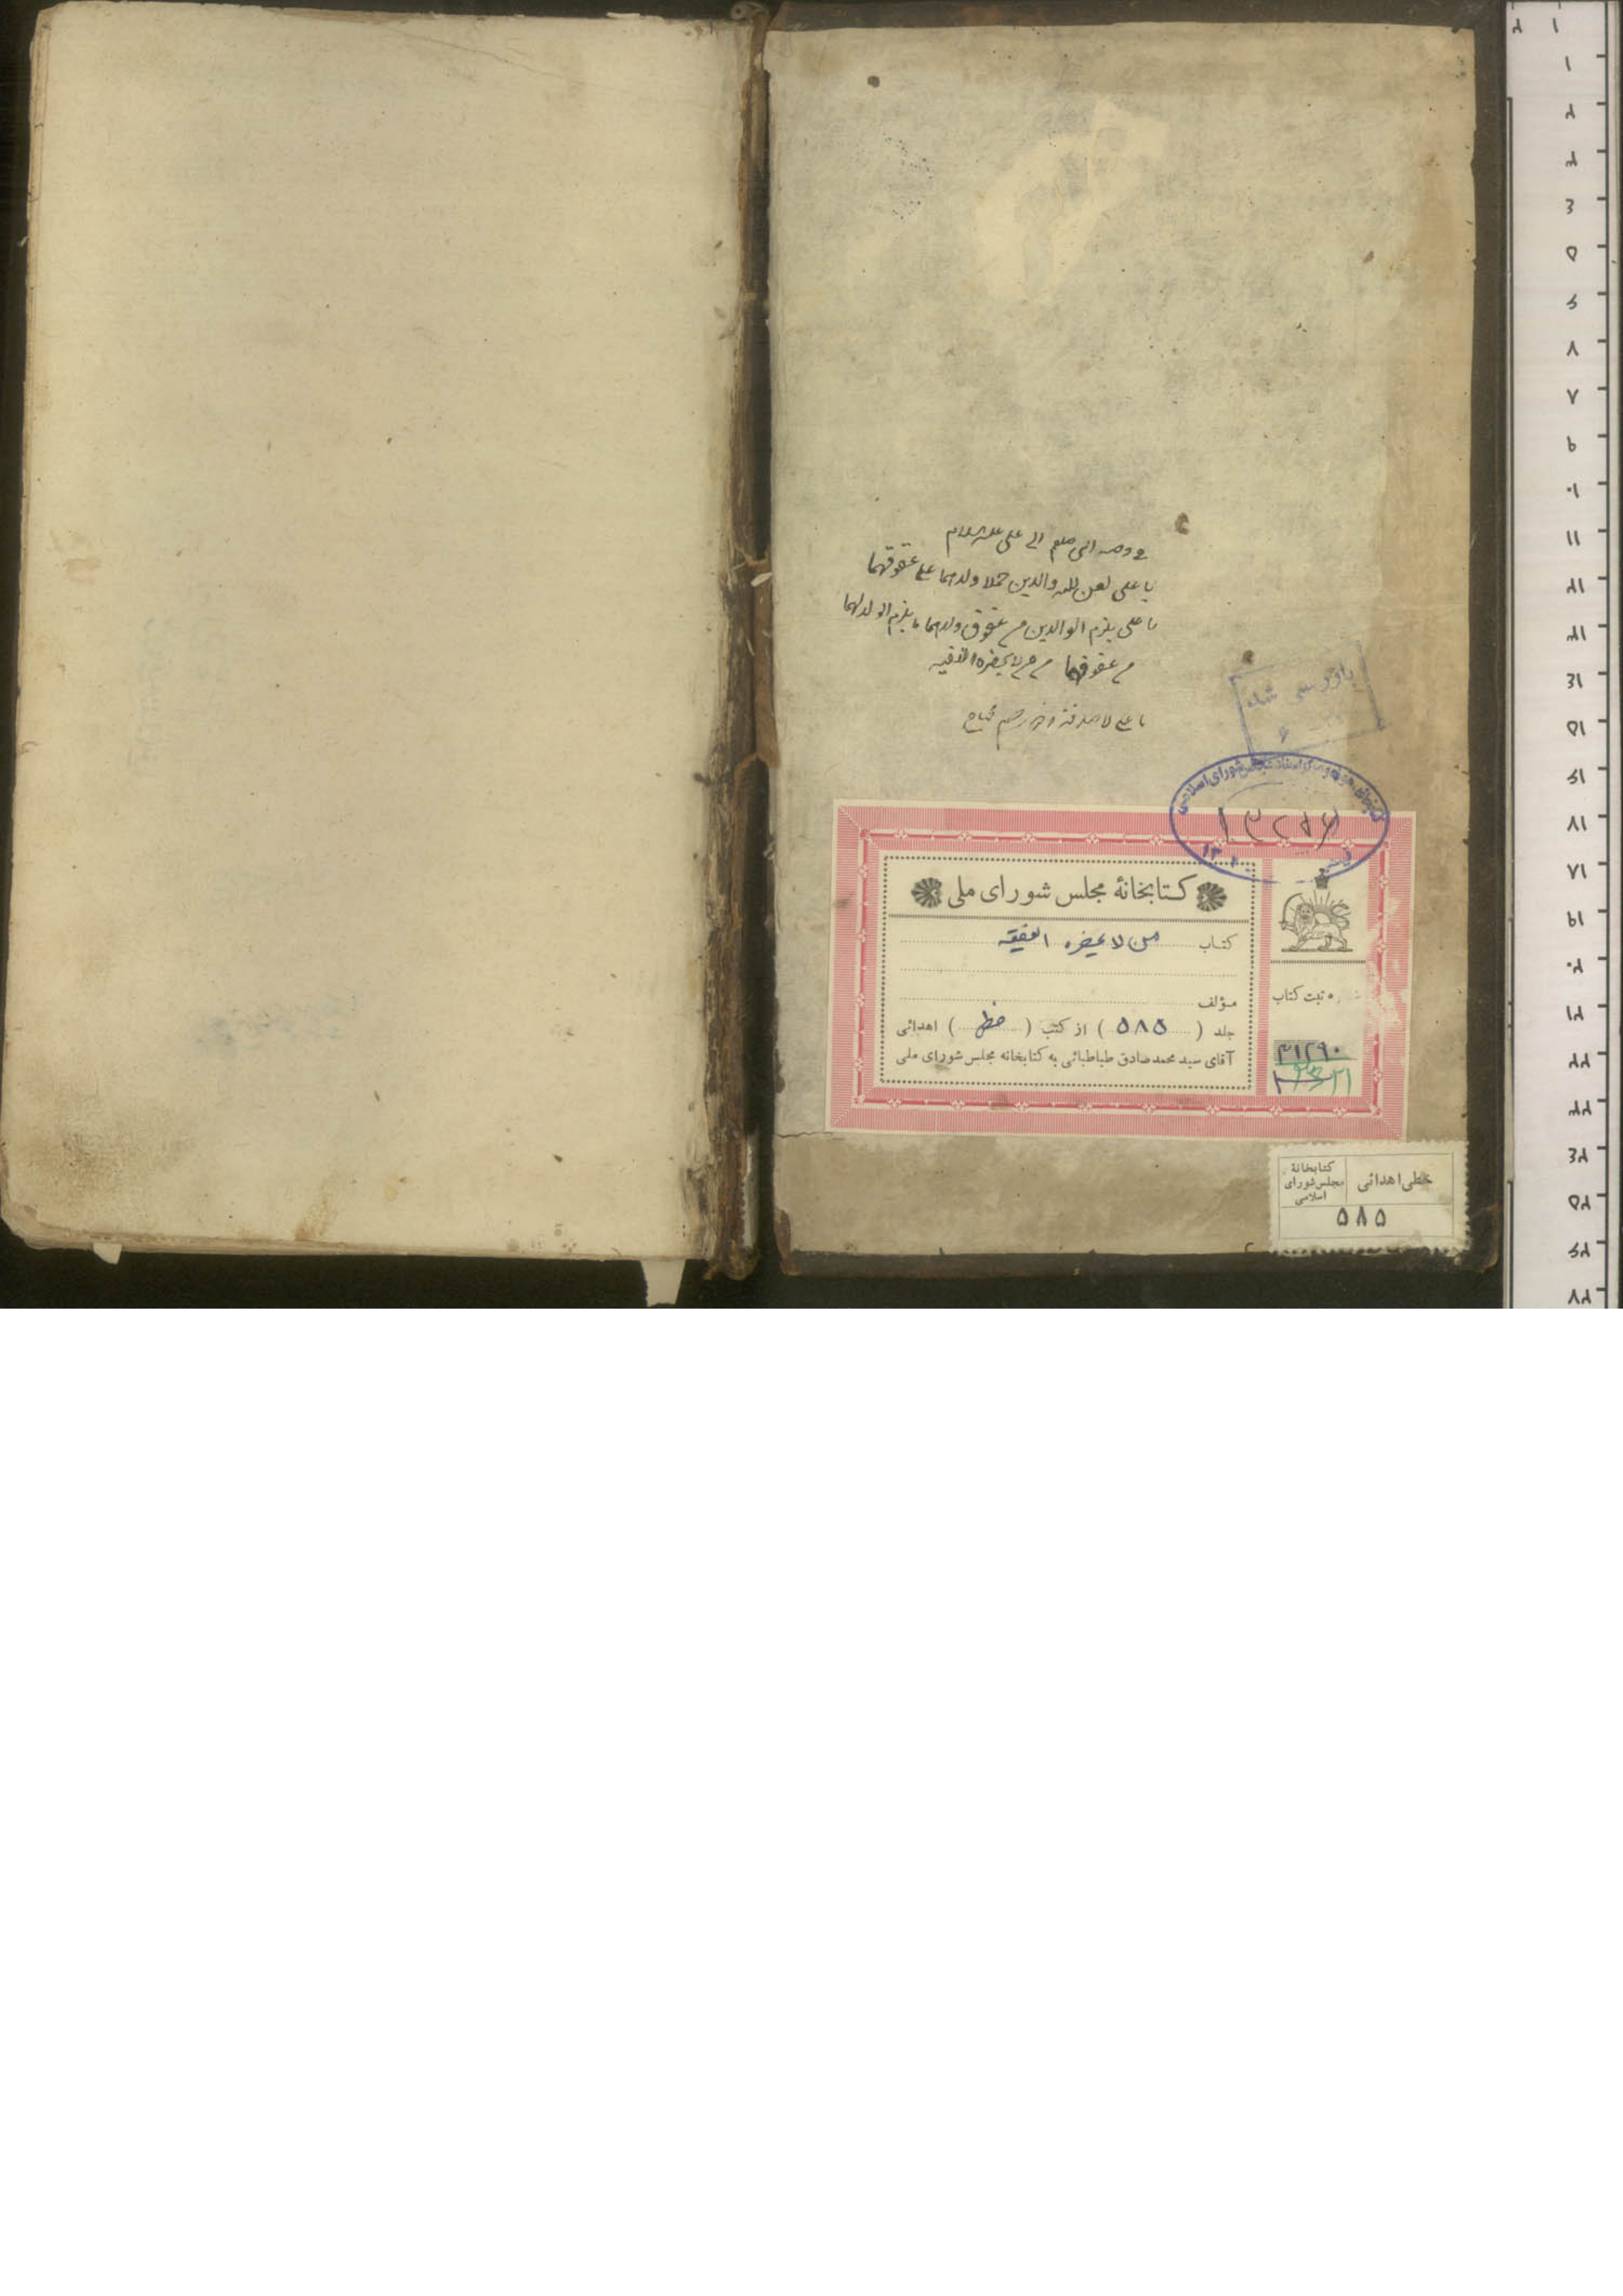 في وصية النبي صلعم الى على عليه السلام
يا على لعن الله والدين حملا ولدهما على عقوقهما
يا على يلزم الوالدين من عقوق ولدهما ما يلزم الولد لهما
من عقوقهما من من لا يحضره الفقيه
يا على لا صدقة وذو رحم محتاج
بازرسی شد
كتابخانه، موزه و مرکز اسناد مجلس شورای اسلامی
کتابخانهٔ مجلس شورای ملی
کتاب من لا یحضره الفقیه
مؤلف
جلد ( ۵۸۵ ) از کتب ( خطی ) اهدائی
آقای سید محمد صادق طباطبائی به کتابخانه مجلس شورای ملی
ثبت کتاب
۳۱۲۹۰
خطی اهدائی
کتابخانهٔ
مجلس شورای
اسلامی
۵۸۵